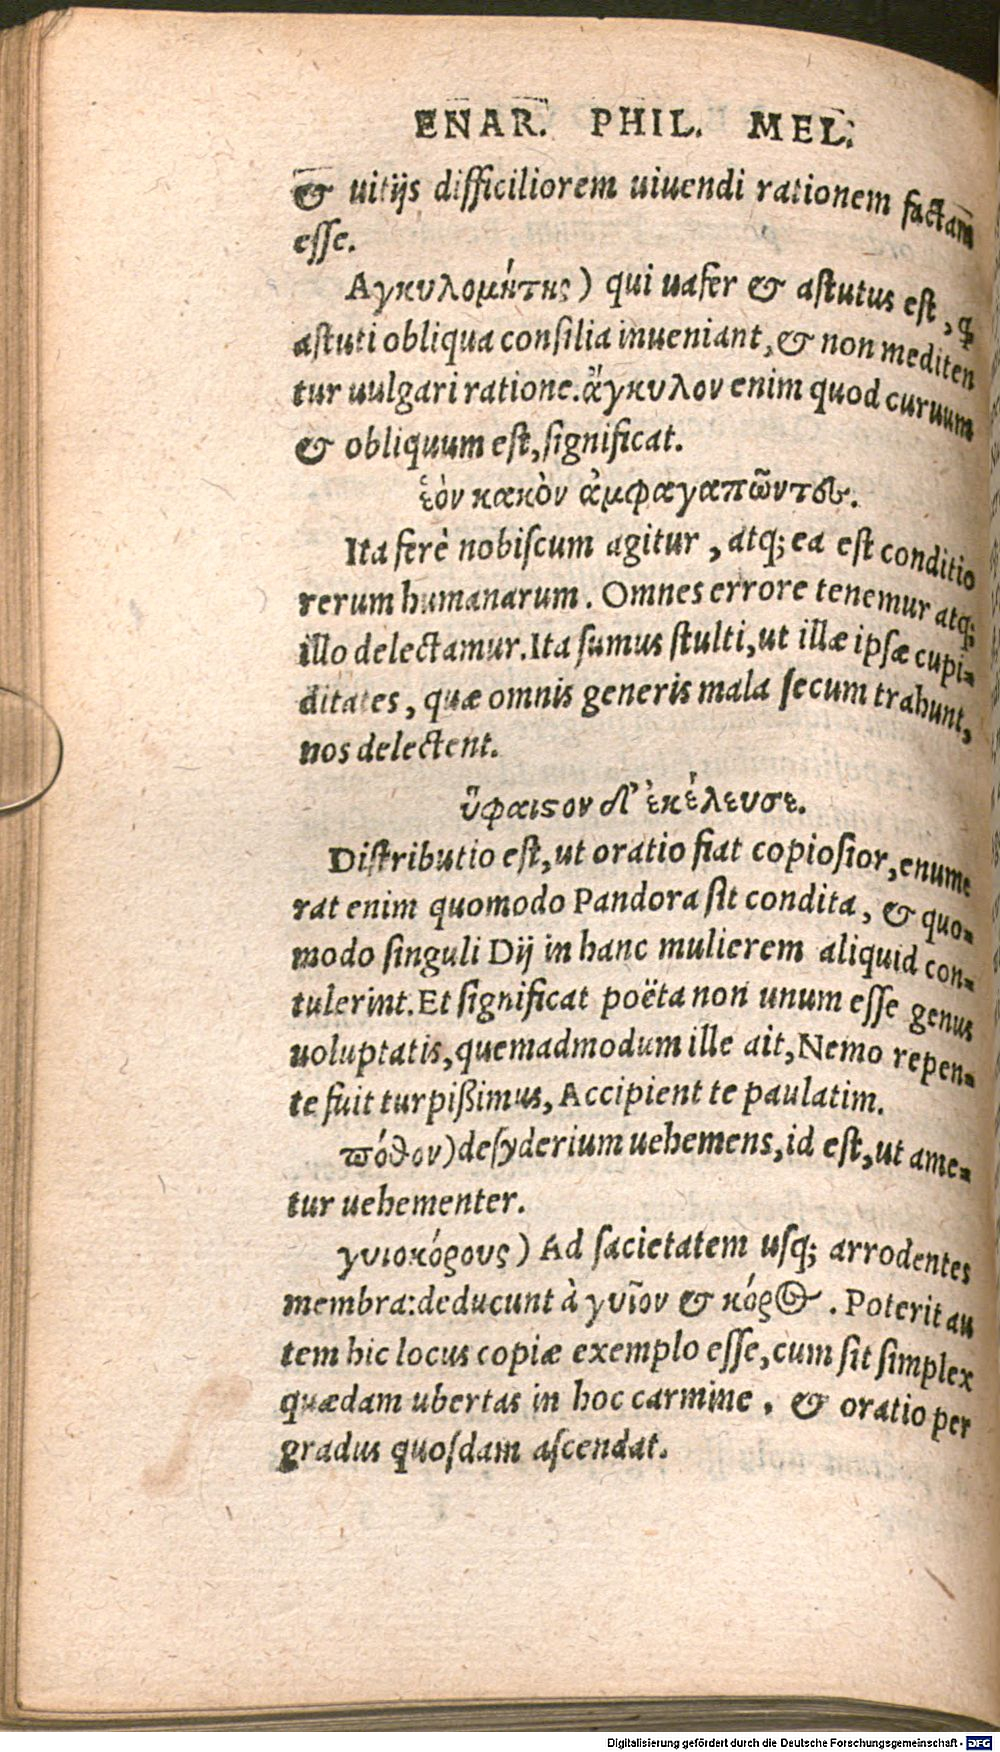 ENAR. PHIL. MEL.
& uitijs difficiliorem uiuendi rationem factam
esse.
Αγκυλομήτης) qui uafer & astutus est, ꝙ
astuti obliqua consilia inueniant, & non mediten
tur uulgari ratione. ἄγκυλον enim quod curuum
& obliquum est, significat.
ἑὸν κακὸν ἀμφαγαπῶντες.
Ita ferè nobiscum agitur, atq; ea est conditio
rerum humanarum. Omnes errore tenemur atq;
illo delectamur. Ita sumus stulti, ut illæ ipsæ cupi-
ditates, quæ omnis generis mala secum trahunt,
nos delectent.
ὕφαιϛον δ' ἐκέλευσε.
Distributio est, ut oratio fiat copiosior, enume
rat enim quomodo Pandora sit condita, & quo-
modo singuli Dij in hanc mulierem aliquid con-
tulerint. Et significat poëta non unum esse genus
uoluptatis, quemadmodum ille ait, Nemo repen-
te fuit turpißimus, Accipient te paulatim.
πόθον) desyderium uehemens, id est, ut ame-
tur uehementer.
γυιοκόρους) Ad sacietatem usq; arrodentes
membra: deducunt à γυῖον & κόρος. Poterit au
tem hic locus copiæ exemplo esse, cum sit simplex
quædam ubertas in hoc carmine, & oratio per
gradus quosdam ascendat.
Digitalisierung gefördert durch die Deutsche Forschungsgemeinschaft - DFG